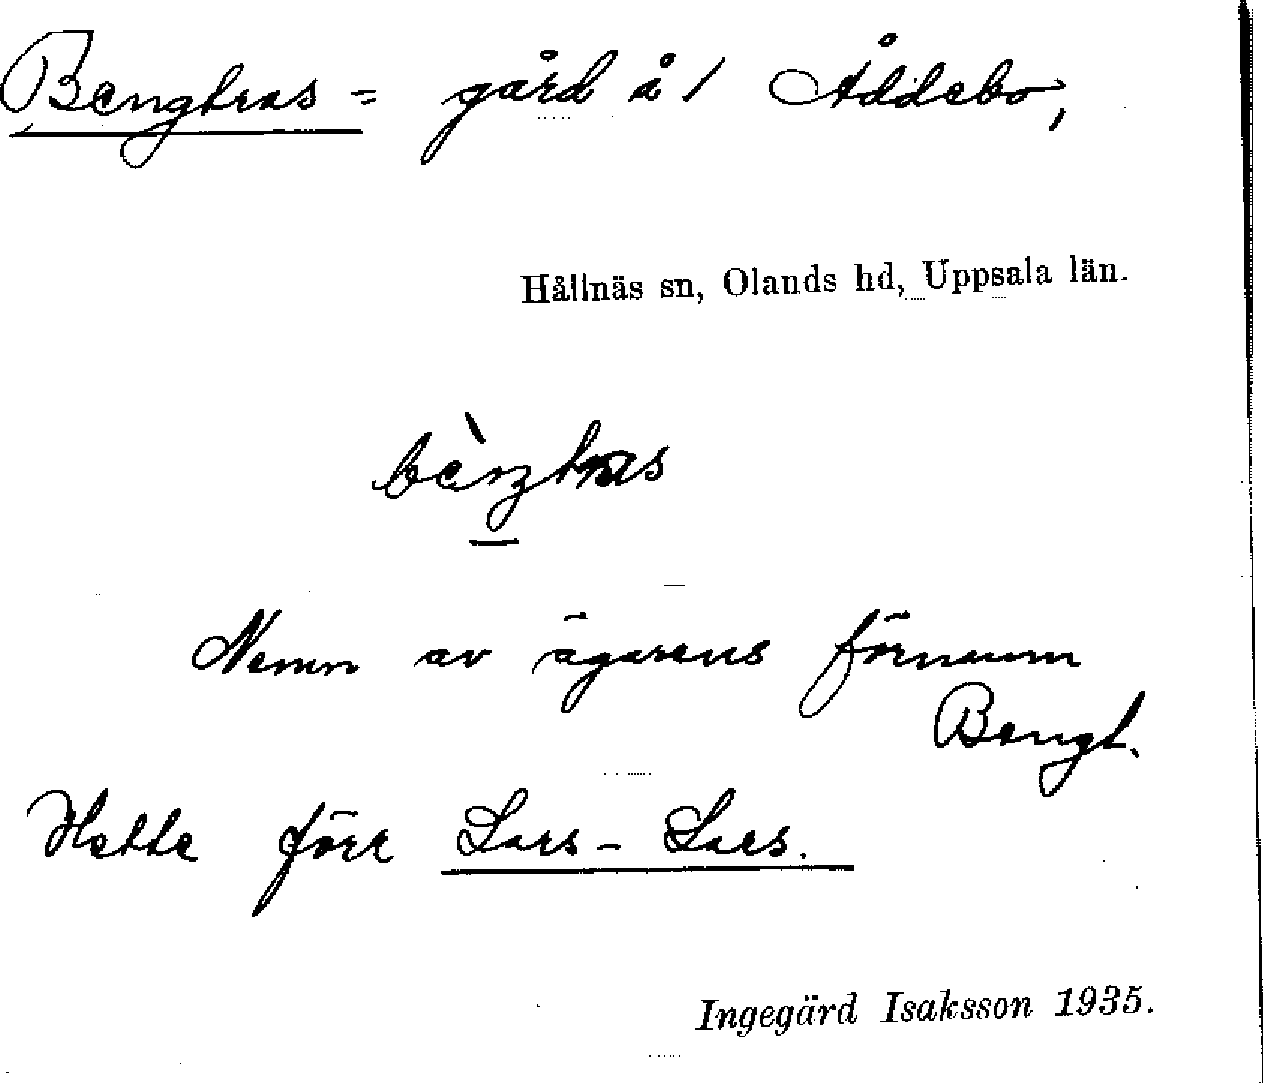 Bengtras = gård å 1 Åddebo,
Hållnäs sn, Olands hd, Uppsala län.
Namn av ägarens förnamn
Bengt.
Hette förr Lars-Lars.
Ingegärd Isaksson 1935.